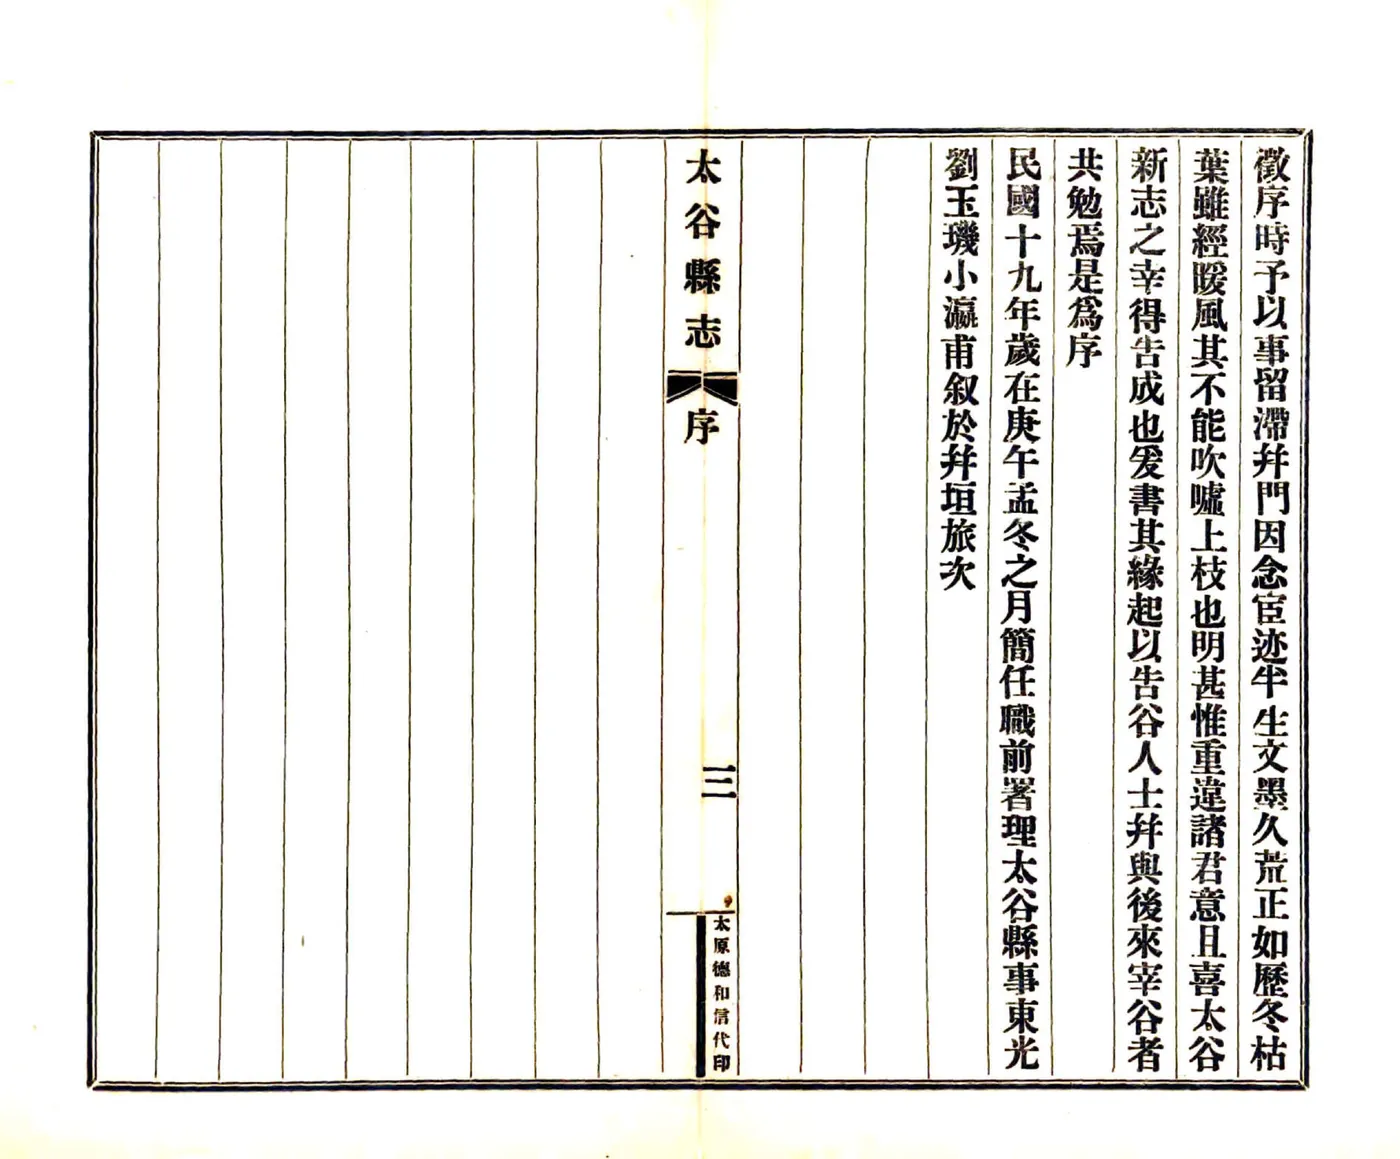 徵序時予以事留滯幷門因念宦迹半生文墨久荒正如歷冬枯
葉雖經暖風其不能吹噓上枝也明甚惟重違諸君意且喜太谷
新志之幸得告成也爰書其緣起以告谷人士幷與後來宰谷者
共勉焉是爲序
民國十九年歲在庚午孟冬之月簡任職前署理太谷縣事東光
劉玉璣小瀛甫叙於幷垣旅次
太谷縣志
序
三
太原德和信代印